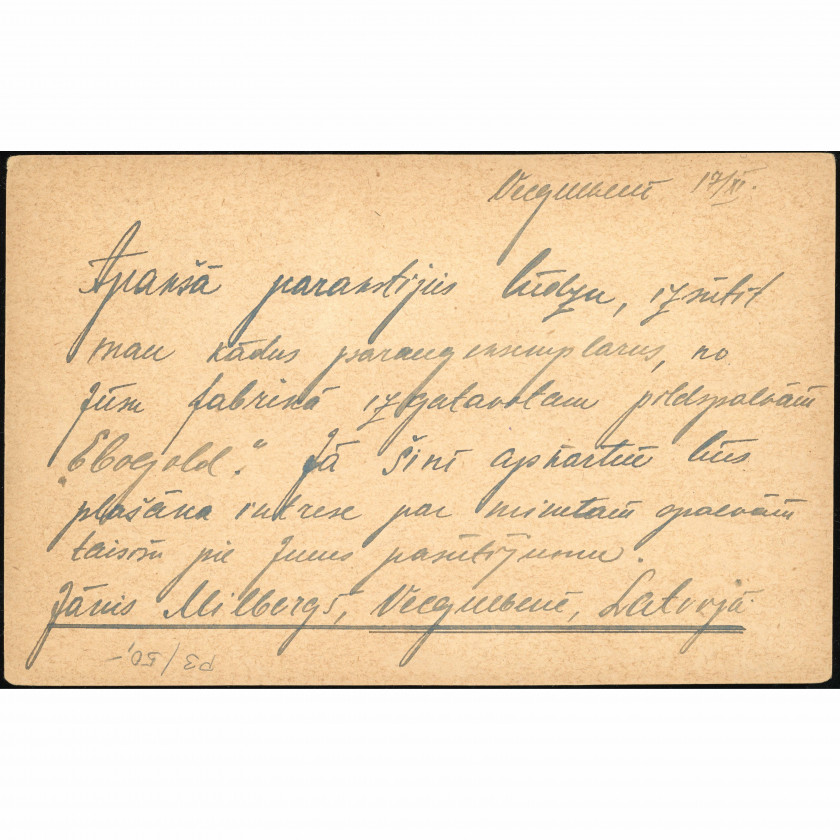 Vecgulbenē 17/XI.
Apakšā parakstijus lūdzu, izsūtīt
man kādus paraugeksemplarus, no
Jūsu fabrikā izgatavotam pildspalvām
"Eboegold." Jā šinī apkārtnē būs
plašāka intrese par minetam spalvām
taisīšu pie Jums pasūtījumu.
Jānis Milbergs, Vecgulbenē, Latvijā
P3/50,-